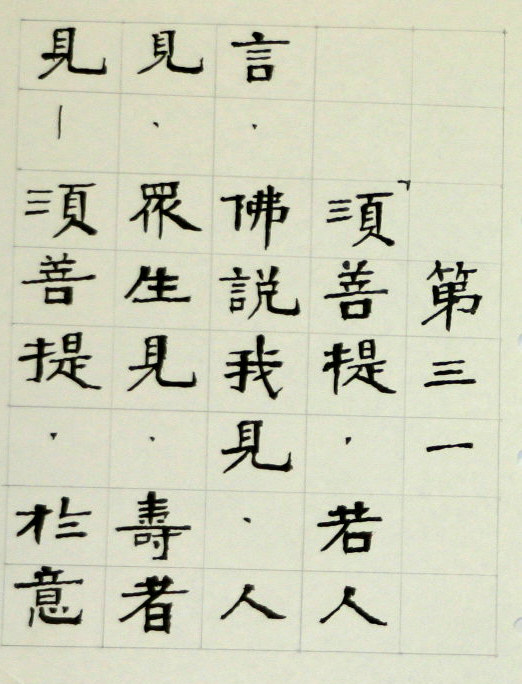 第三一
「須善提．若人
言．佛說我見．人
見．眾生見．壽者
見—須善提．於意